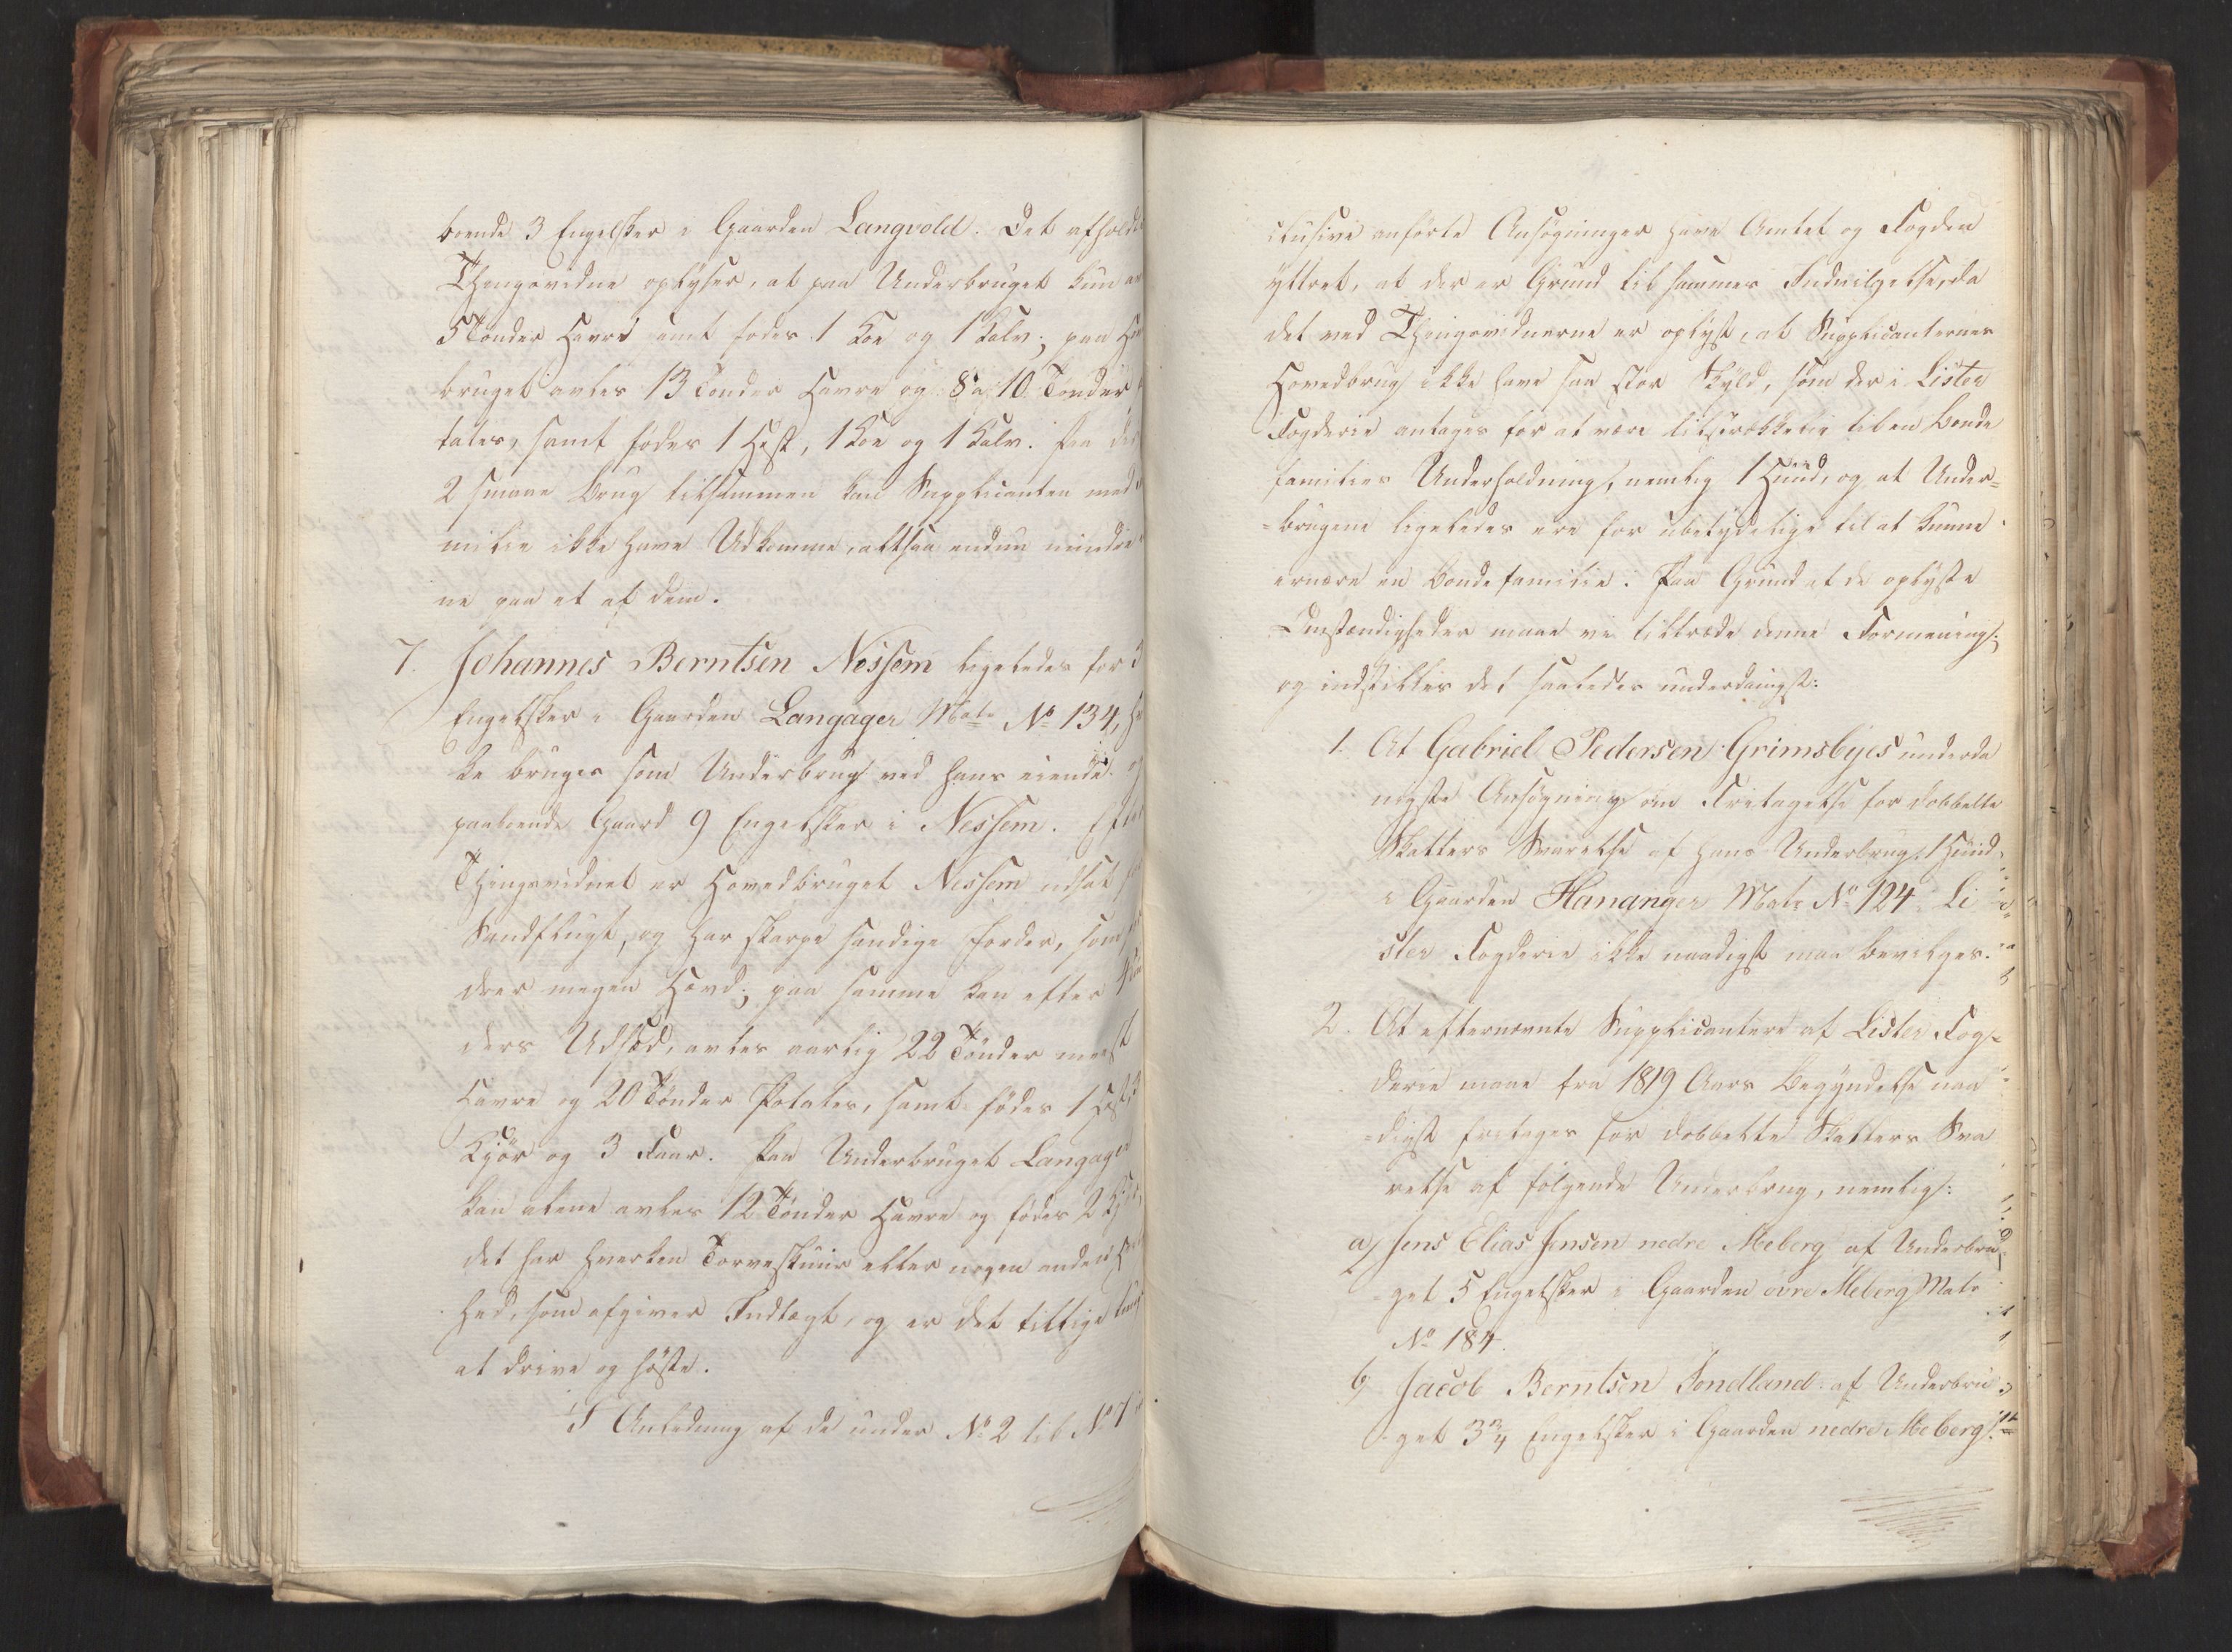 boende 3 Engelsker i Gaarden Langvold. Det afholdte
Thingsvidne oplyser, at paa Underbruget kun
5 Tønder Havre samt fødes 1 Koe og 1 Kalv; paa
bruget avles 13 Tønder Havre og 8 a 10 Tønder
tates, samt fødes 1 Hest, 1 Koe og 1 Kalv. Paa
2 smaae Brug tilsammen kan Supplicanten med
milie ikke have Udkomme, altsaa endnu mindre
ne paa et af dem.
7. Johannes Berntsen Nessem ligeledes for 3
Engelsker i Gaarden Langager Mats No 134,
ke bruges som Underbrug ved hans eiende og
paaboende Gaard 9 Engelsker i Nessem. Efter
Thingsvidnet er Hovedbruget Nessem udsat
Sandflugt, og har skarpe sandige Jorder, som
drer megen Hævd; paa samme kan efter
ders Udsæd, avles aarlig 22 Tønder meest
Havre og 20 Tønder Potates, samt fødes 1 Hest
Kjør og 3 Faar. Paa Underbruget Langager
kan alene avles 12 Tønder Havre og fødes 2
det har hverken Torveskuur eller nogen anden
hed, som afgiver Indtægt, og er det tillige
at drive og høste.
I Anledning af de under No 2 til No 7
clusive anførte Ansøgninger have Amtet og Fogden
yttret, at der er Grund til sammes Indvilgelse, da
det ved Thingsvidnerne er oplyst, at Supplicanternes
Hovedbrug ikke have saa stor Skyld, som der i Lister
Fogderie antages for at være tilstrækkelig til en Bonde
families Underholdning, nemlig 1 Huud, og at Under-
-brugene ligeledes ere for ubetydelige til at kunne
ernære en Bondefamilie. Paa Grund af de oplyste
Omstændigheder maae vi tiltræde denne Formening;
og indstilles det saaledes underdanigst:
1. At Gabriel Pedersen Grimsbyes underda
nigste Ansøgning om Fritagelse for dobbelte
Skatters Svarelse af hans Underbrug 1 Huud
i Gaarden Hananger Mats No 124 Li
ster Fogderie ikke naadigst maa bevilges.
2. At efternævnte Supplicantere af Lister Fog-
derie maae fra 1819 Aars Begyndelse naa
-digst fritages for dobbelte Skatters Sva
relse af følgende Underbrug, nemlig:
a) Jens Elias Jensen nedre Meberg af Underbru
-get 5 Engelsker i Gaarden øvre Meberg Mats
No 184.
b) Jacob Berntsen Sondland af Underbru
-get 3 3/4 Engelsker i Gaarden nedre Meberg